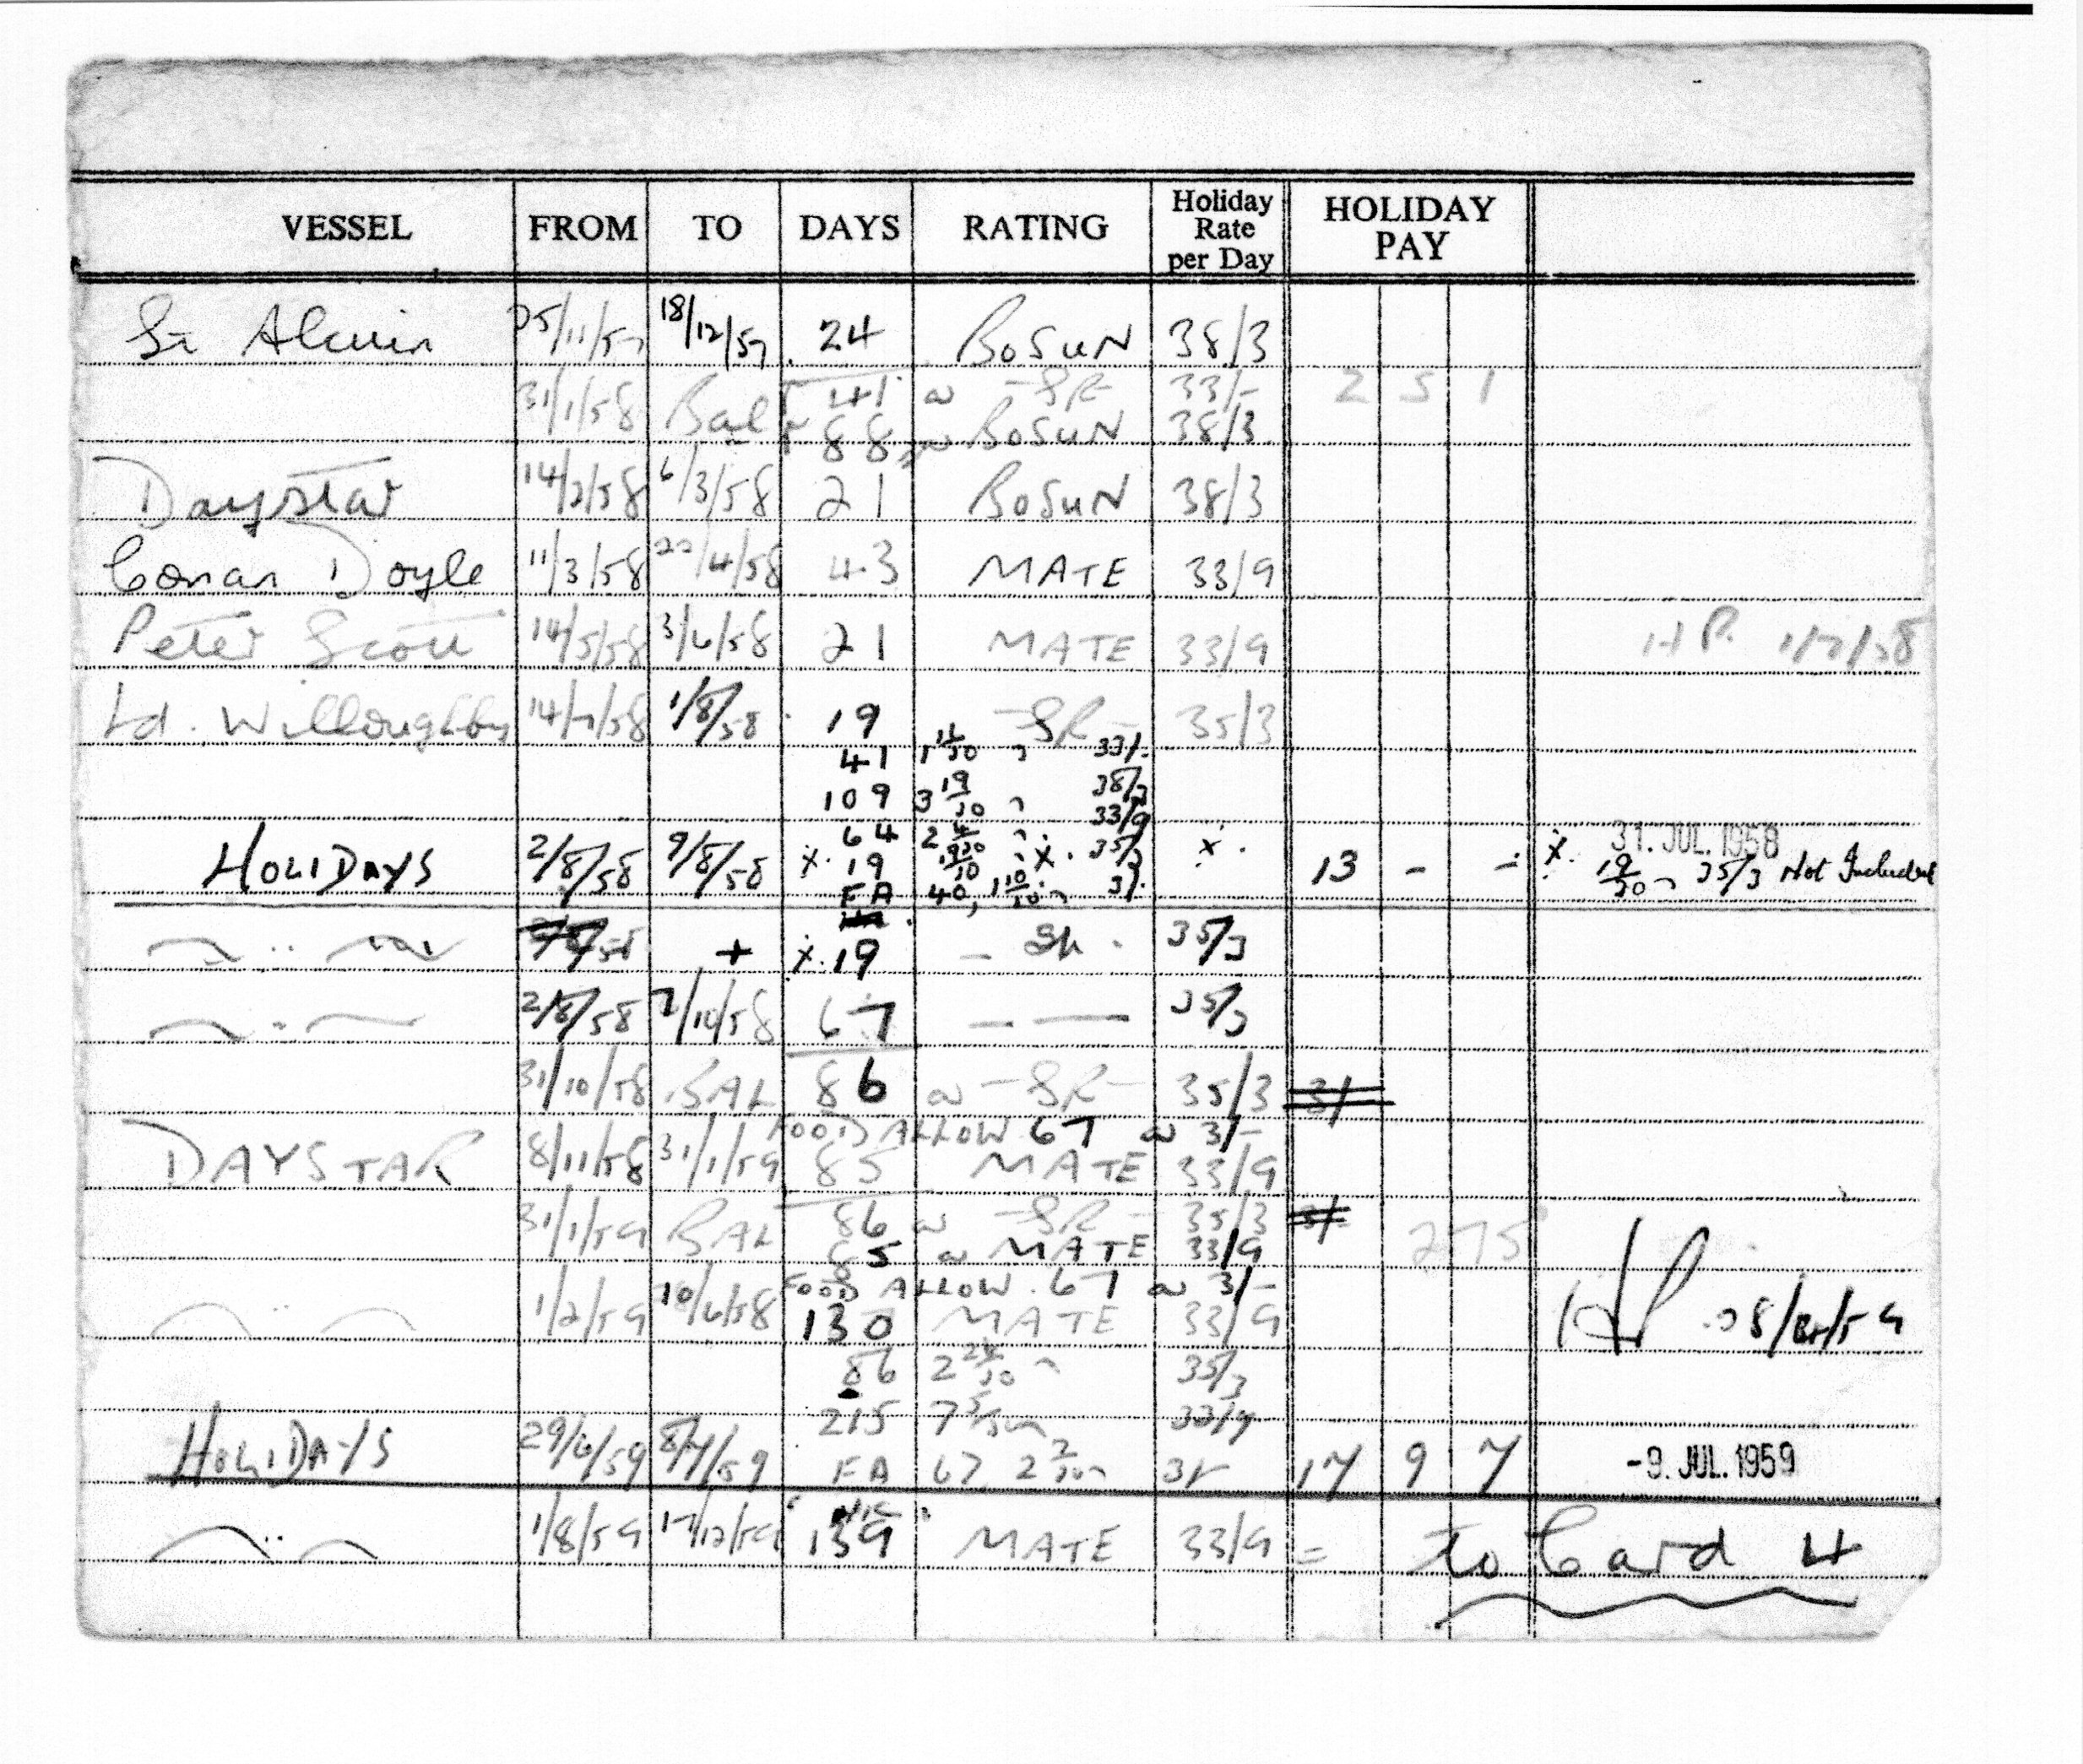 VESSEL FROM TO DAYS RATING Holiday Rate per Day HOLIDAY PAY
St Alcuin 25/11/57 18/12/57 24 BOSUN 38/3
31/1/58 Bal 41 a SR 33/- 2 5 1
88 a BOSUN 38/3
Daystar 14/2/58 6/3/58 21 BOSUN 38/3
Conan Doyle 11/3/58 22/4/58 43 MATE 33/9
Peter Scott 14/5/58 3/6/58 21 MATE 33/9 HP. 1/7/58
Ld. Willoughby 14/7/58 1/8/58 19 SR 35/3
41 33/-
109 3 19/30 38/3
64 2 4/30 33/9
HOLIDAYS 2/8/58 9/8/58 x. 19 19/30 x. 35/3 x. 13 - - 31. JUL. 1958
FA 40, 1 10/30 3/- x. 19/30 35/3 Not Included
+ x. 19 - SR. 35/3
2/8/58 7/10/58 67 - — 35/3
31/10/58 BAL 86 a - SR - 35/3 3/-
FOOD ALLOW 67 a 3/-
DAYSTAR 8/11/58 31/1/59 85 MATE 33/9
31/1/59 BAL 86 a - SR - 35/3 3/- 275
85 a MATE 33/9
FOOD ALLOW. 67 a 3/-
1/2/59 10/6/58 130 MATE 33/9 HP
86 2 26/30 35/3
215 7 5/30 33/9
HOLIDAYS 29/6/59 8/7/59 FA 67 2 7/30 3/- 17 9 7 -9. JUL. 1959
1/8/59 17/12/59 139 MATE 33/9 = To Card 4